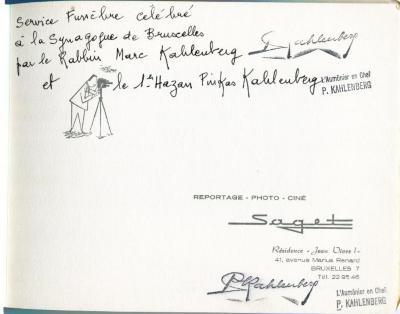 Service Funèbre célébré
à la Synagogue de Bruxelles
par le Rabbin Marc Kahlenberg
Kahlenberg
et le 1er Hazan Pinkas Kahlenberg
L'Aumônier en Chef
P. KAHLENBERG
REPORTAGE - PHOTO - CINÉ
Saget
Résidence - Jean Vives I-
41, avenue Marius Renard
BRUXELLES 7
Tél. 22 95 46
PKahlenberg
L'Aumônier en Chef
P. KAHLENBERG